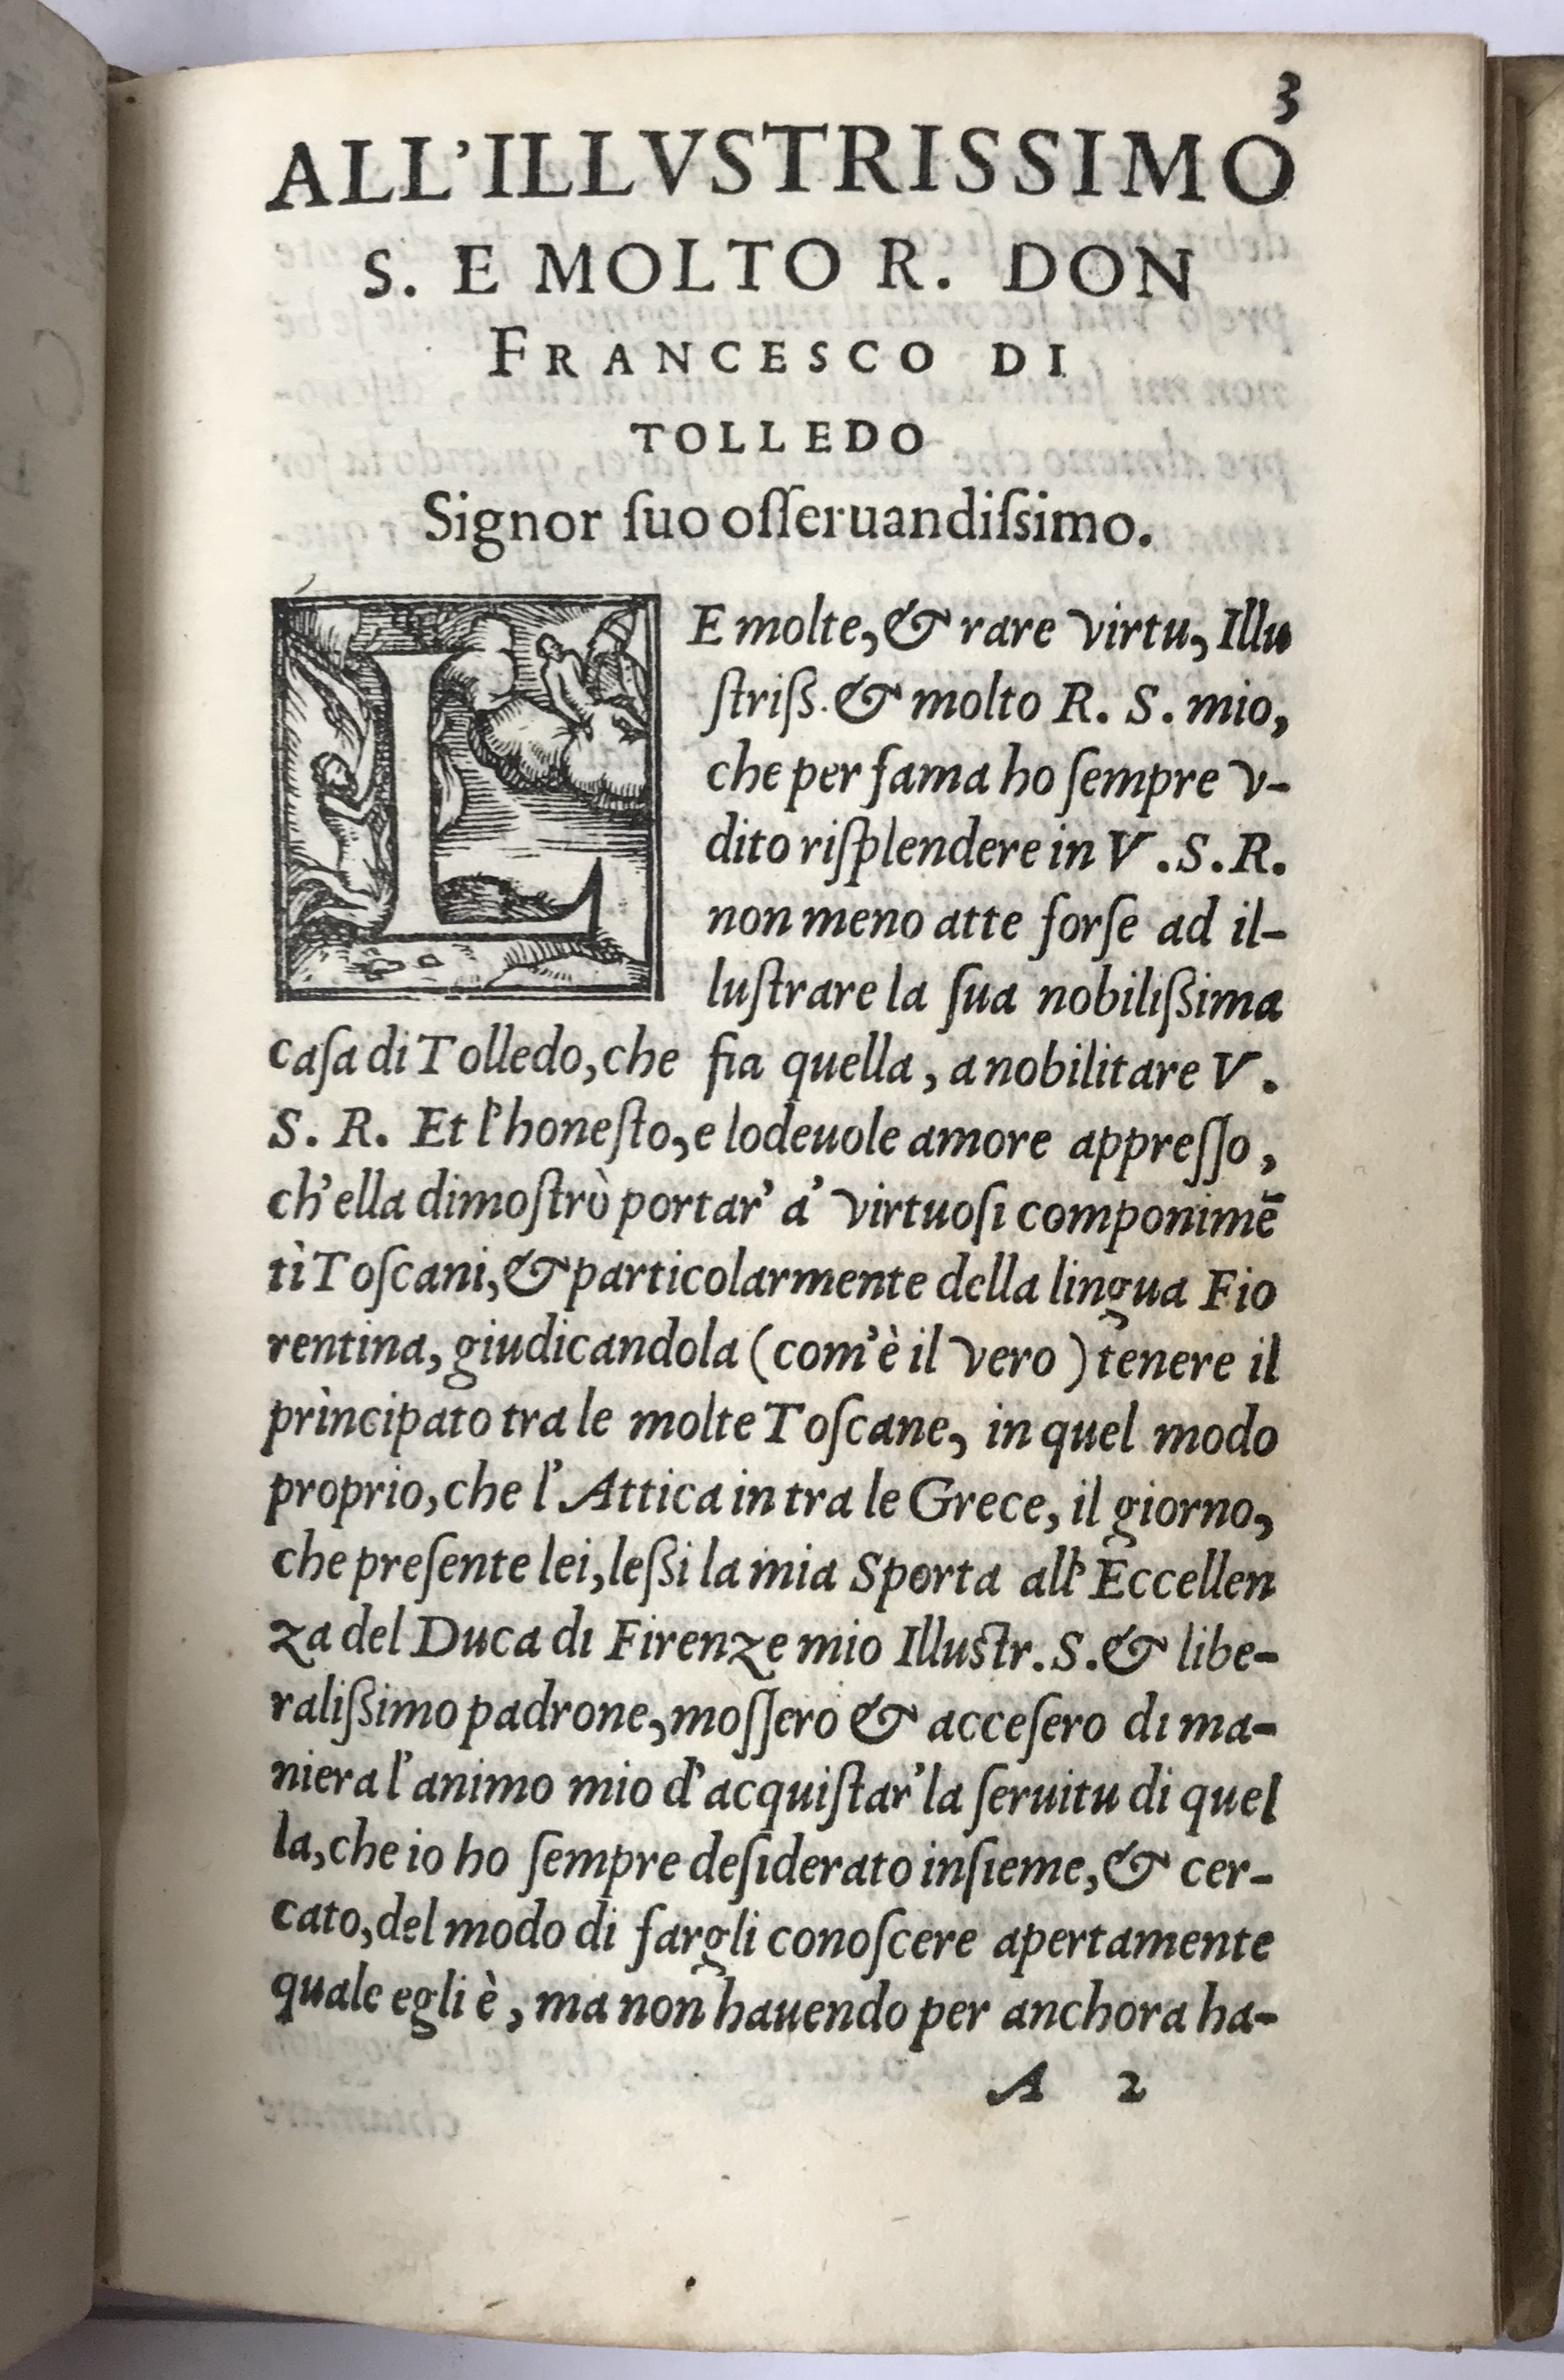 3
ALL'ILLVSTRISSIMO
S. E MOLTO R. DON
FRANCESCO DI
TOLLEDO
Signor ſuo oſſeruandiſsimo.
LE molte, & rare virtu, Illu
ſtriß. & molto R. S. mio,
che per fama ho ſempre v-
dito riſplendere in V. S. R.
non meno atte forſe ad il-
luſtrare la ſua nobilißima
caſa di Tolledo, che ſia quella, a nobilitare V.
S. R. Et l'honeſto, e lodeuole amore appreſſo,
ch'ella dimoſtrò portar' a' virtuoſi componimē
ti Toſcani, & particolarmente della lingua Fio
rentina, giudicandola (com'è il vero) tenere il
principato tra le molte Toſcane, in quel modo
proprio, che l'Attica in tra le Grece, il giorno,
che preſente lei, leßi la mia Sporta all'Eccellen
za del Duca di Firenze mio Illustr. S. & libe-
ralißimo padrone, moſſero & acceſero di ma-
niera l'animo mio d'acquiſtar' la ſeruitu di quel
la, che io ho ſempre deſiderato inſieme, & cer-
cato, del modo di fargli conoſcere apertamente
quale egli è, ma non hauendo per anchora ha-
A 2